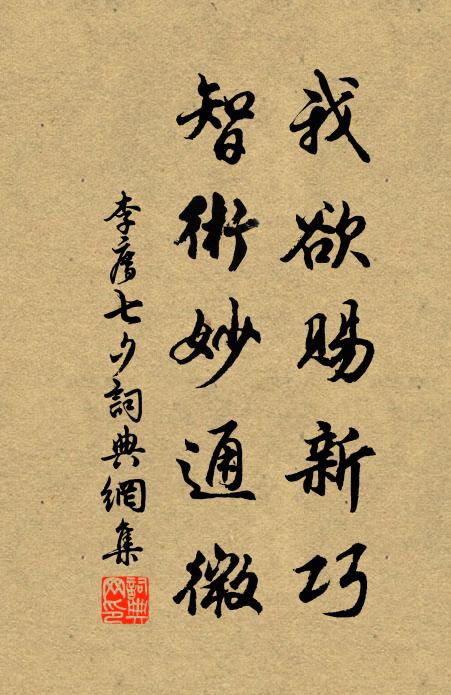 我欲賜新巧
智術妙通微
李廌七夕詞典網集
詞典网印